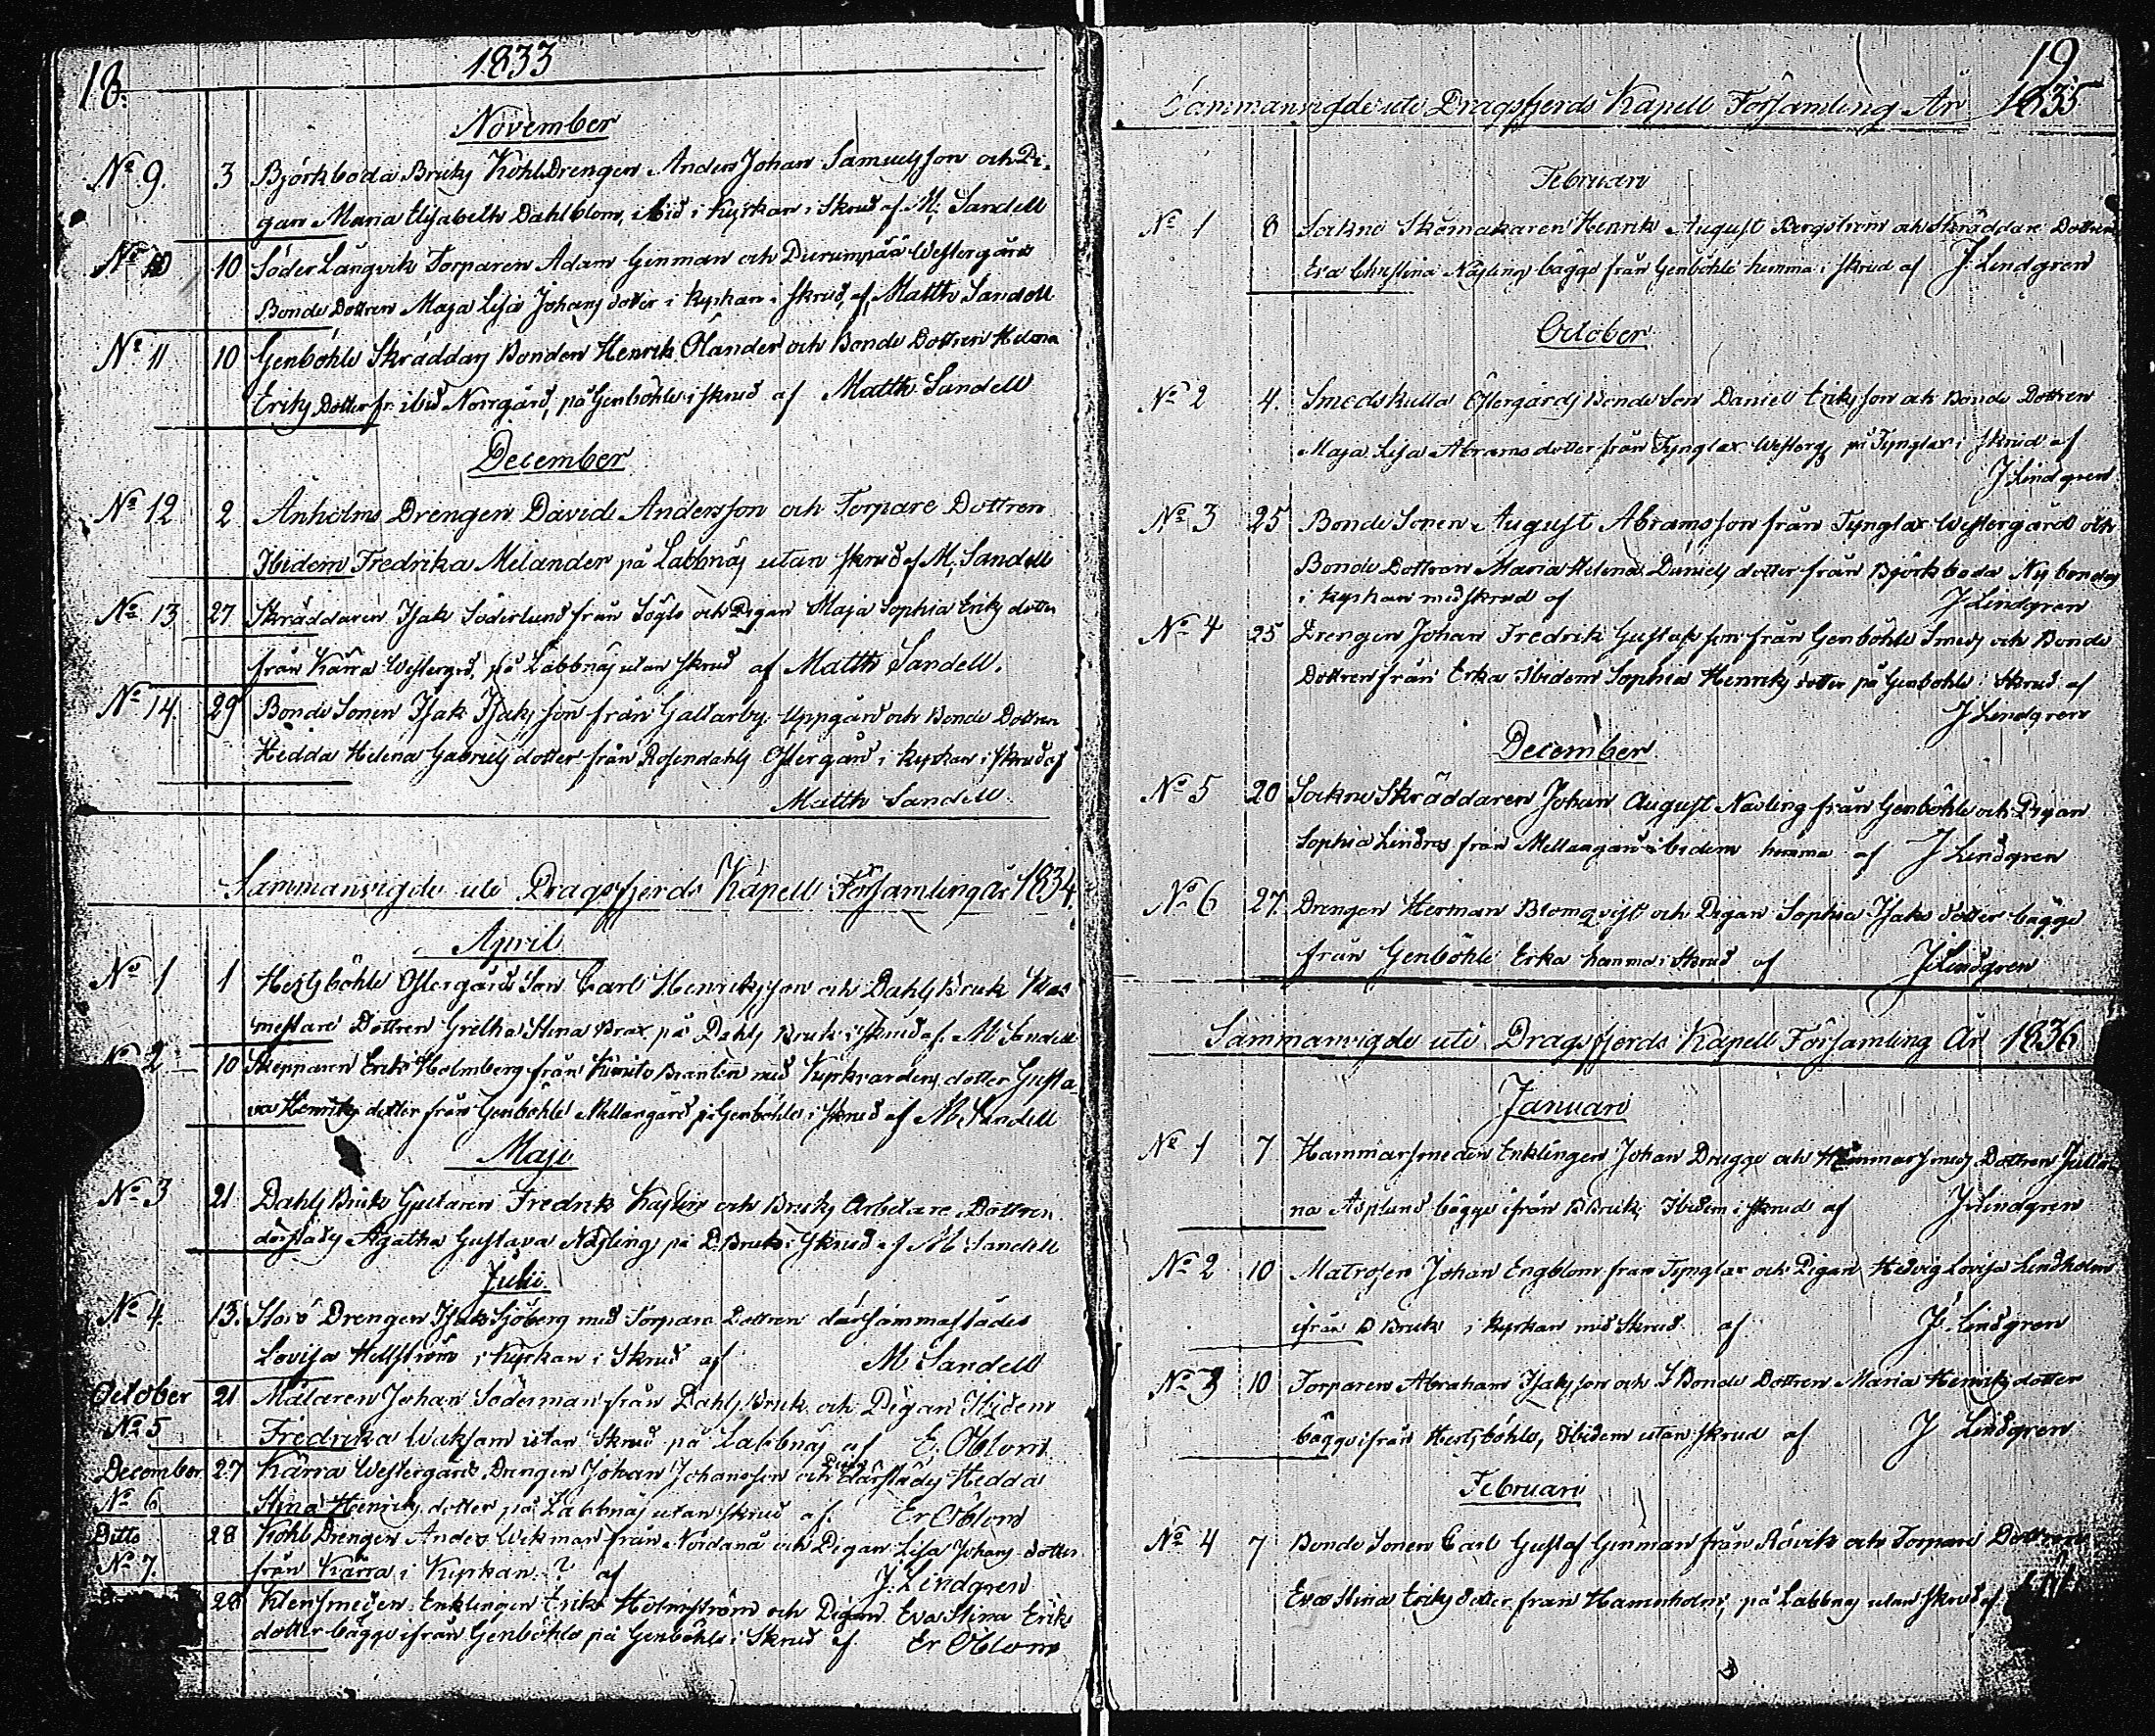 18.
1833
November
No 9. 3 Björkboda Bruks KohlDrengen Anders Johan Samuelsson och Pi-
gan Maria Elisabeth Dahlblom, ibid i Kyrkan i Skrud af M. Sandell
No 10 10 Söder Långvik Torparen Adam Genman och Westergårds
Bonde Dottren Maja Lisa Johans dotter i Kyrkan i skrud, af Matth Sandell
No 11 10 Genböhle Skräddars Bonden Henrik Ölander och Bonde Dottren Helena
Eriks Dotter fr. ibid Norrgård, på Genböhle i skrud af Matth Sandell
December
No 12 2 Ånholms Drengen David Andersson och Torpare Dottren
Ibidem Fredrika Melander på Labbnäs utan skrud af M. Sandell
No 13 27 Skräddaren Isak Söderlund från Söglö och Pigan Maja Sophia Eriks dotter
från Kärra Westergrd, på Labbnäs utan skrud af Matth Sandell.
No 14. 29 Bonde Sonen Isak Isaks son från Galtarby Uppgård och Bonde Dottren
Hedda Helena Gabriels dotter från Rosendahls Östergård i kyrkan i skrud af
Matth Sandell
Sammanvigde uti Dragsfjerds Kapell Församling År 1834.
April
No 1 1 Hertsböhle Östergårds Son Carl Henriksson och Dahls Bruk
mestare Dottren Gretha Stina Brax på Dahls Bruk i skrud af M Sandell
No 2 10 Skepparen Erik Holmberg från Kimito Branten med Kyrkvärdens dotter Gusta-
va Henriks dotter från Genböhle Mellangård på Genböhle i skrud af M Sandell
Maji
No 3 21 Dahls Bruks Gjutaren Fredrik och Bruks Arbetare Dottren
därstädes Agatha Gustava Näsling på D. Bruk i skrud af M Sandell
Julii
No 4. 13. Storö Drengen Isak Sjöberg med Torpare Dottren därsammastädes
Lovisa Hellström i Kyrkan i Skrud af M. Sandell
October 21 Målaren Johan Söderman från Dahls Bruk och Pigan Ibidem
No 5 Fredrika Waksam utan Skrud på Labbnäs af E. Öblom
December 27 Kärra Westergårds Drengen Johan Johansson och Pigan därstädes Hedda
No 6 Stina Henriks dotter på Labbnäs utan skrud af Er Öblom
Ditto 28 Kohl Drengen Anders Wekman från Nordanå och Pigan Lisa Johans dotter
No 7. från Kärra i Kyrkan ? af J. Lindgren
28 Klensmeden Enklingen Erik Holmström och Pigan Eva Stina Eriks
dotter bägge ifrån Genböhle på Genböhle i Skrud af Er Öblom
19
Sammanvigde uti Dragsfjerds Kapell Församling År 1835
Februari
No 1 8 Sockne Skomakaren Henrik August Bergström och Skräddare Dottren
Eva Christina Näsling bägge från Genböhle hemma i skrud af J. Lindgren
October
No 2 4. Smedskulla Östergårds Bonde Son Daniel Eriksson och Bonde Dottren
Maja Lisa Abrams dotter från Tynglax Westergs på Tynglax i skrud af
J Lindgren
No 3 25 Bonde Sonen August Abramsson från Tynglax Westergård och
Bonde Dottren Maria Helena Daniels dotter från Björkboda Nybondas
i kyrkan med skrud af J Lindgren
No 4 25 Drengen Johan Fredrik Gustafsson från Genböhle Smeds och Bonde
Dottren från Erka Ibidem Sophia Henriks dotter på Genböhle i Skrud af
J Lindgren
December
No 5 20 Sockne Skräddaren Johan August Näsling från Genböhle och Pigan
Sophia Lindros från Mellangård ibidem hemma af J Lindgren
No 6 27. Drengen Herman Blomqvist och Pigan Sophia Isaks dotter bägge
från Genböhle Erka hemma i Skrud af J Lindgren
Sammanvigde uti Dragsfjerds Kapell Församling År 1836
Januari
No 1 7 Hammarsmeden Enklingen Johan Drugge och Hammarsmeds Dottren Julia-
na Asplund bägge ifrån D Bruk, Ibidem i skrud af J Lindgren
No 2 10 Matrosen Johan Engblom från Tynglax och Pigan Hedvig Lovisa Lindholm
ifrån D Bruk i kyrkan med Skrud af J. Lindgren
No 3 10 Torparen Abraham Isaksson och Bonde Dottren Maria Henriks dotter
bägge ifrån Hertsböhle, Ibidem utan skrud af J Lindgren
Februari
No 4 7 Bonde Sonen Carl Gustaf Genman från Rövik och Torpare Dottren
Eva Stina Eriks dotter från Hammholm, på Labbnäs utan skrud af